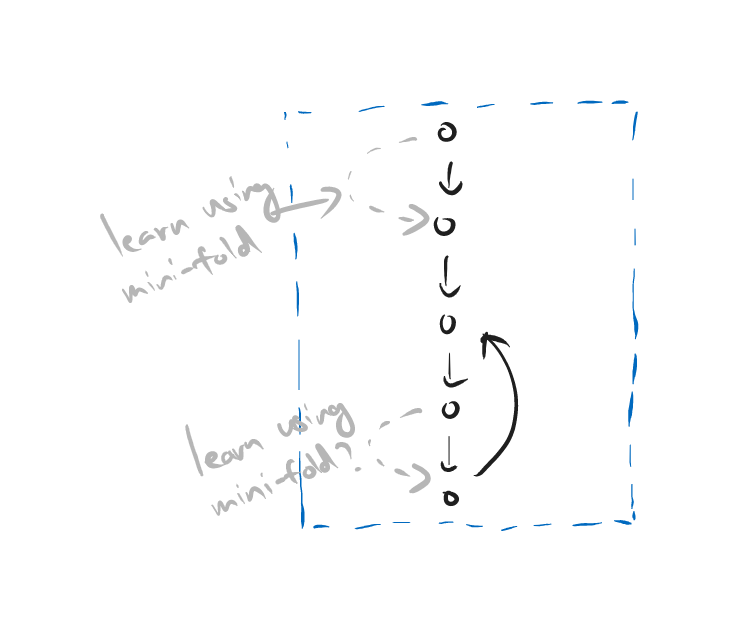 learn using
mini-fold
learn using
mini-fold?